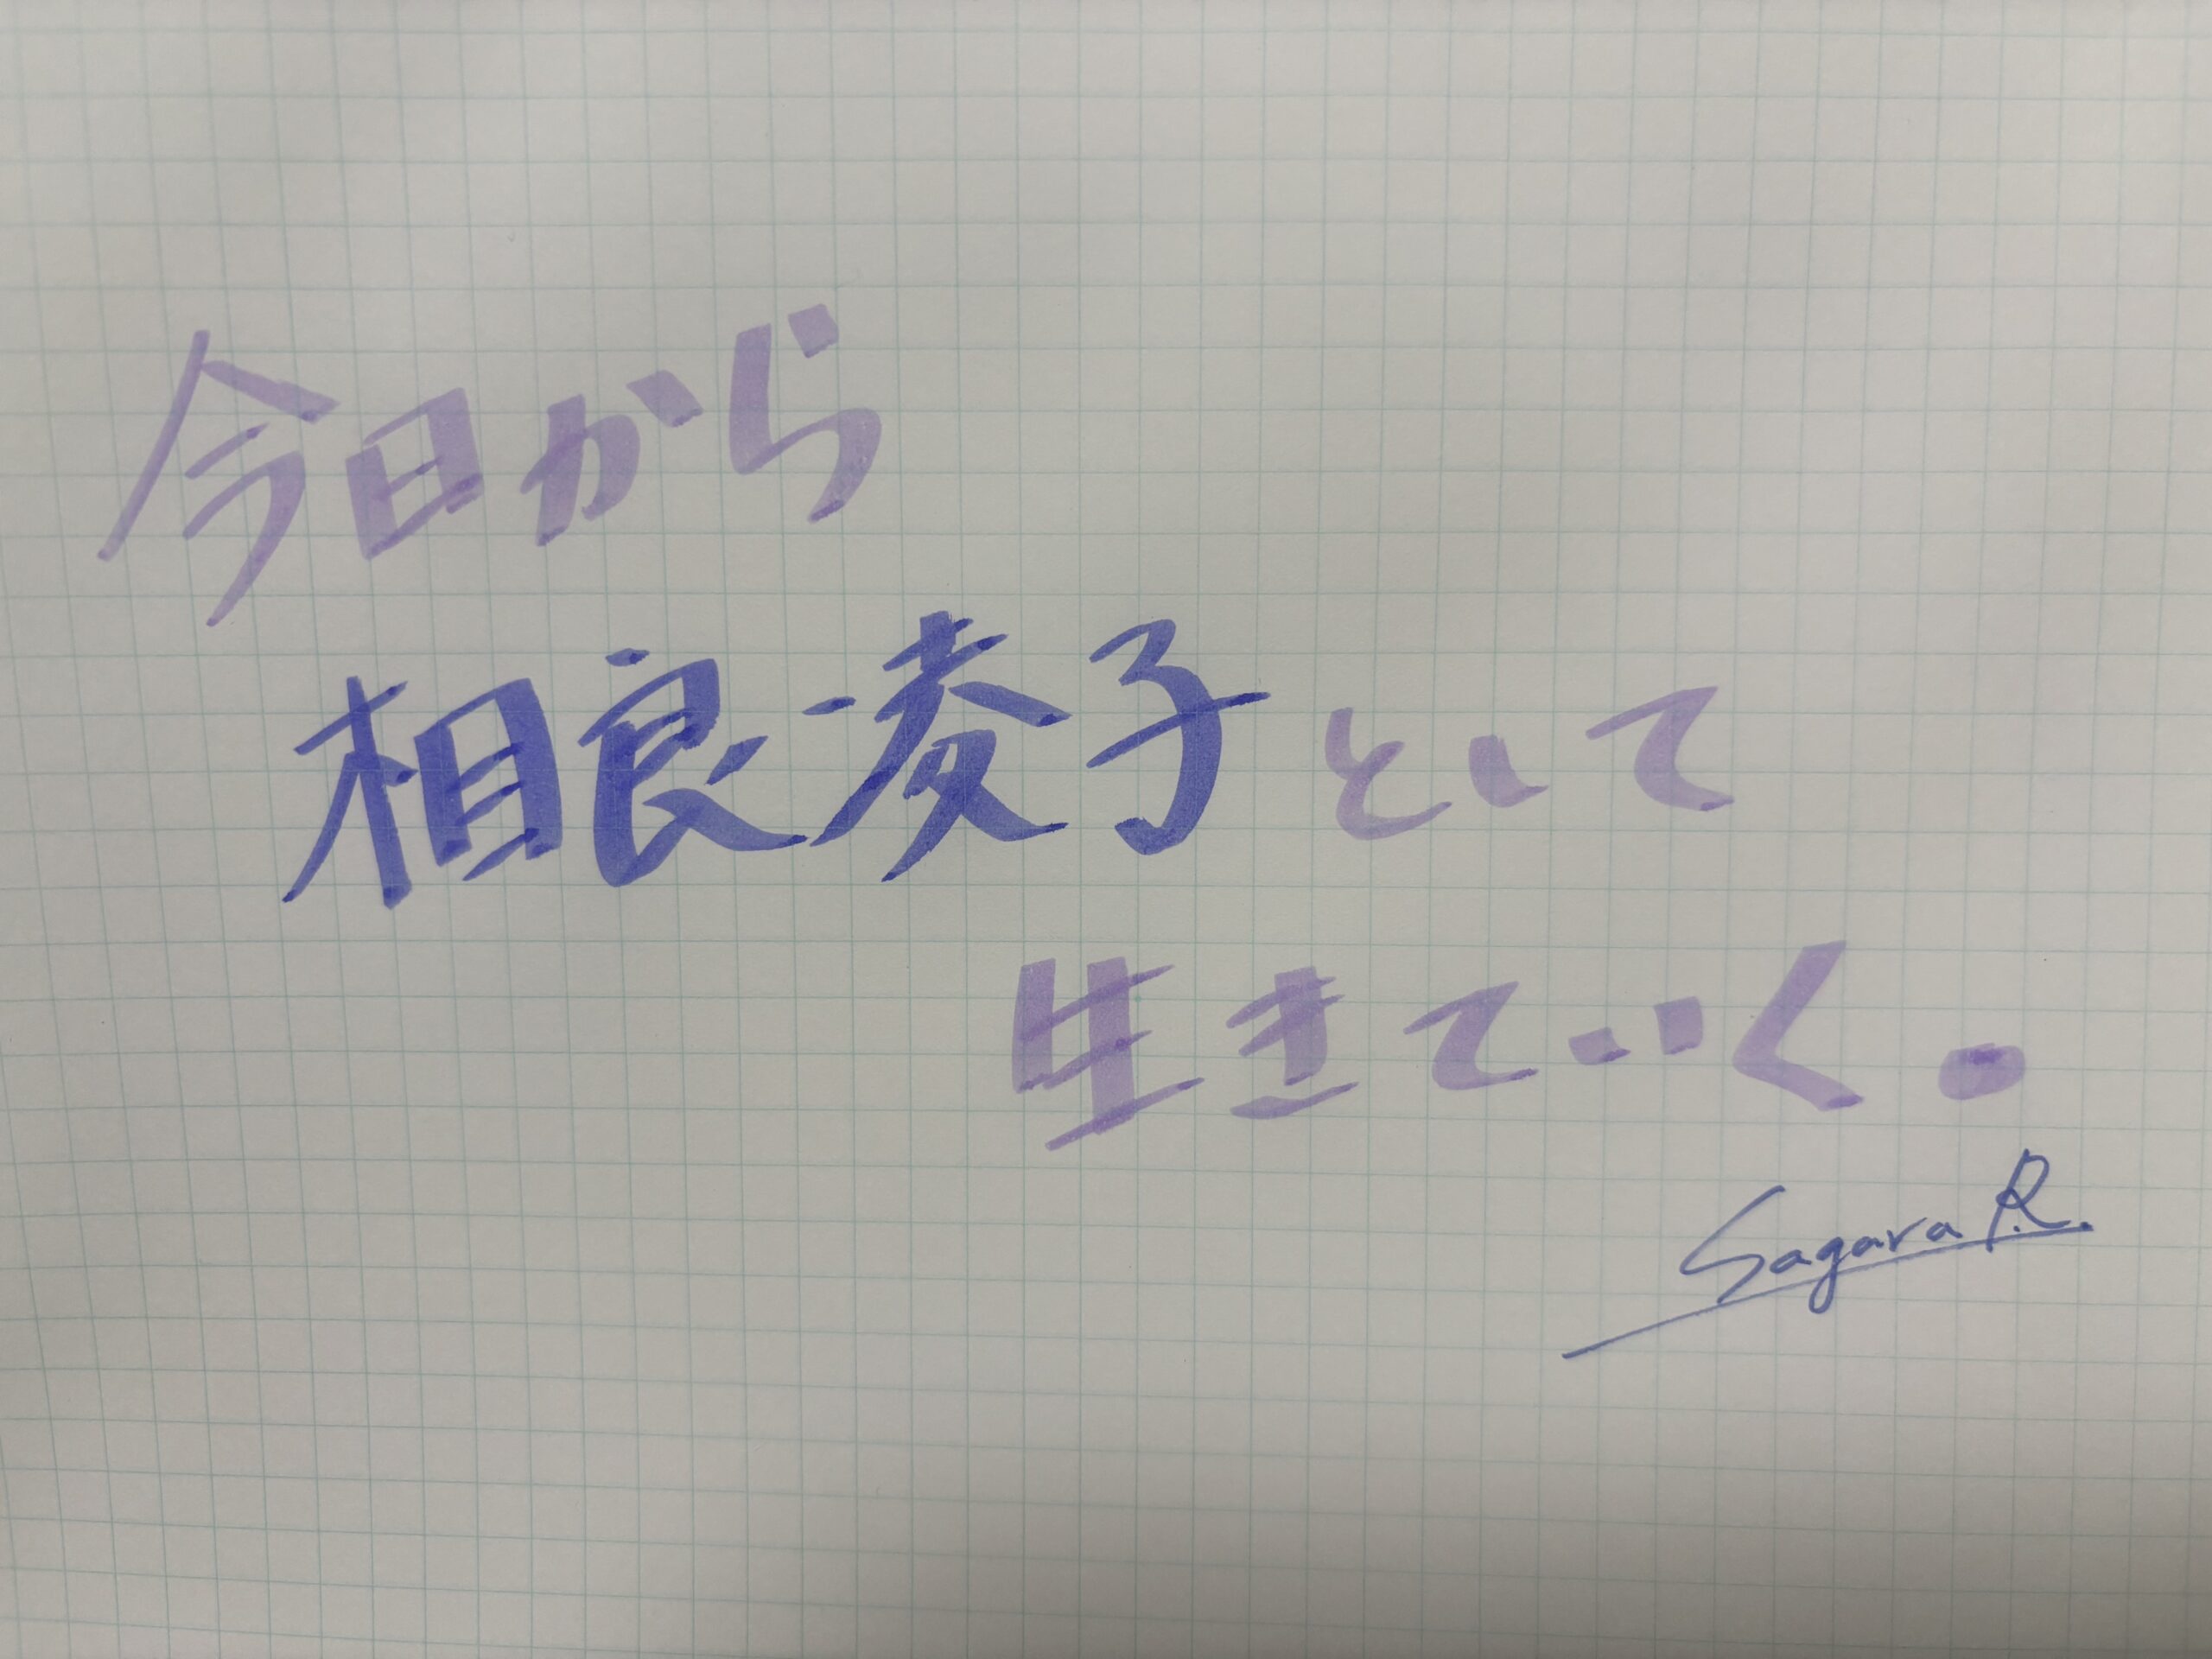 今日から
相良凌子として
生きていく.
Sagara R.